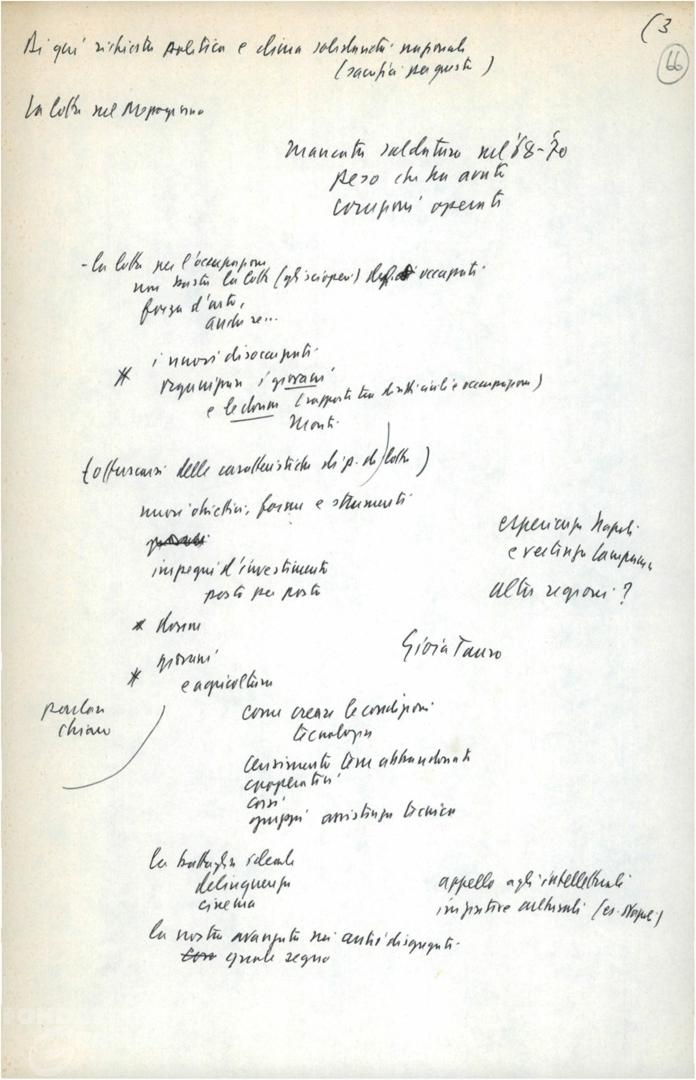 (3
66
Di qui richiesta politica e clima solidarietà nazionale
(sacrifici per questo)
La lotta nel Mezzogiorno
mancata saldatura nel '68-'70
peso che ha avuto
corruzioni operati
- la lotta per l'occupazione
non basta la lotta (gli scioperi) degli occupati
forza d'urto,
anche se...
* i nuovi disoccupati
organizzare i giovani
e le donne (rapporto tra diritti civili e occupazione)
Monti.
(offuscarsi delle caratteristiche di p. di lotta)
nuovi obiettivi, forme e strumenti
impegni d'investimento
posto per posto
esperienza Napoli
e vertenza Campania
altre regioni?
* donne
Gioia Tauro
* giovani
e agricoltura
parlar
chiaro
come creare le condizioni
tecnologia
censimento terre abbandonate
cooperative
corsi
gruppi assistenza tecnica
la battaglia ideale
delinquenza
cinema
appello agli intellettuali
iniziative culturali (es. Napoli)
la nostra avanzata nei centri disgregati
quale segno